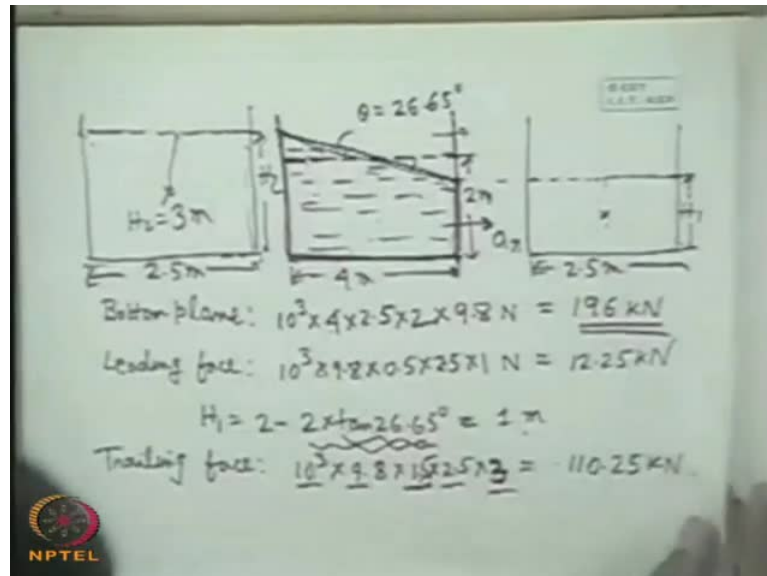 θ = 26.65°
H₂ = 3 m
H₂
2 m
aₓ
H₁
2.5 m
4 m
2.5 m
Bottom plane: 10³ × 4 × 2.5 × 2 × 9.8 N = 196 kN
Leading face: 10³ × 9.8 × 0.5 × 2.5 × 1 N = 12.25 kN
H₁ = 2 - 2 × tan 26.65° = 1 m
Trailing face: 10³ × 9.8 × 1.5 × 2.5 × 3 = 110.25 KN
NPTEL